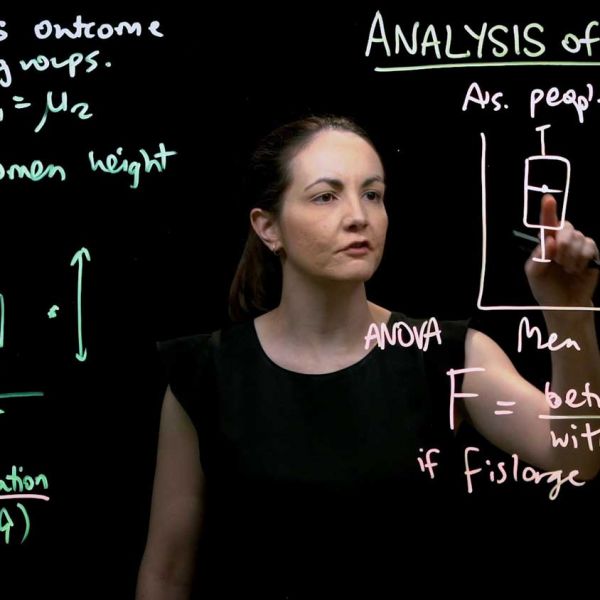 outcome
groups.
= μ₂
women height
ation
ANALYSIS of
Aus. peop
ANOVA
Men
F = betw
with
if F is large